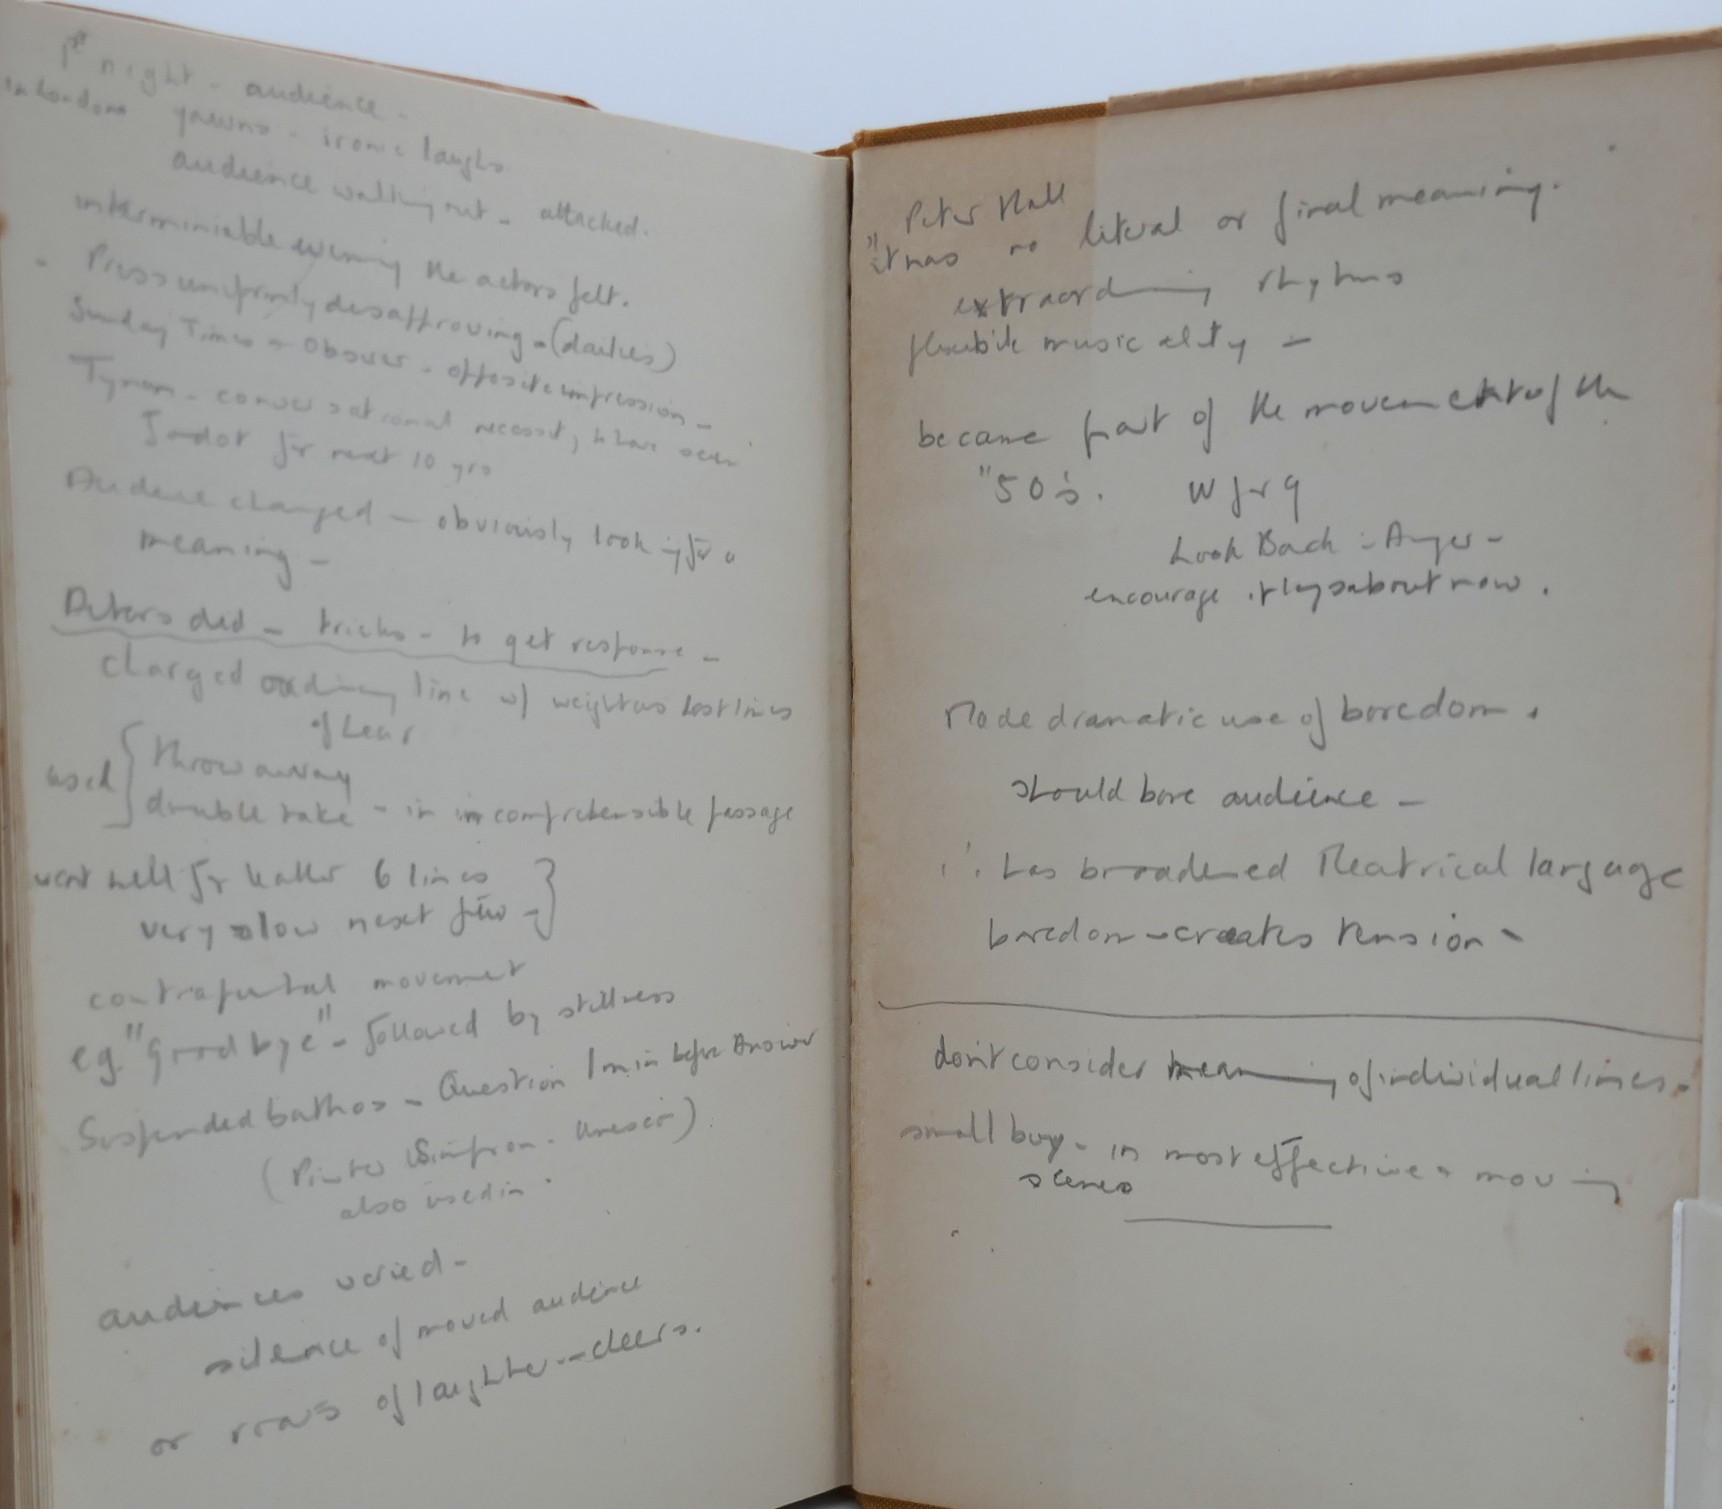 1st night - audience -
in London yawns - ironic laughs
audience walking out - attacked.
interminiable evening the actors felt.
Press uniformly disapproving - (dailies)
Sunday Times & Observer - opposite impression -
Tynan - conversational necessity to have seen
Godot for next 10 yrs
Audience changed - obviously looking for a
meaning -
Actors did - tricks - to get response -
charged ordinary line w/ weight as last lines
of Lear
used { throw away
double take - in incomprehensible passage
went hell for leather 6 lines
very slow next few - }
contrapuntal movement
eg. "Goodbye" - followed by stillness
Suspended bathos - Question 1 min before Answer
(Pinter Simpson - Ionesco)
also used in .
audiences varied -
silence of moved audience
or roars of laughter - cheers.
Peter Hall
"it has no literal or final meaning.
extraordinary rhythms
flexible musicality -
became part of the movement of the
"50's.
Look Back in Anger -
encourage plays about now.
Made dramatic use of boredom.
should bore audience -
∴ has broadened theatrical language
boredom - creates tension -
don't consider meaning of individual lines.
small boy - in most effective & moving
scenes